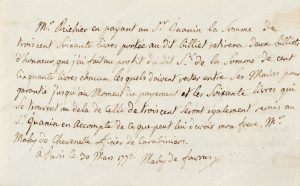 Mr. Richer en payant au Sr. Quanin la Somme de
trois cent soixante livres portée au dit billet retirera deux billets
d'honneur, que j'ai fait au profit du dit Sr. de la Somme de cent
cinquante livres chacun, lesquels doivent rester entre Ses Mains pour
garantie jusqu'au Moment du payement et les Soixante livres qui
se trouvent au dela de celle de trois cent seront egalement remis au
Sr. Quanin en Accompte de ce que peut lui devoir mon frere, Mr.
Mahy de Chevenelle officier de Carabiniers.
a Paris le 30 Mars 177 Mahy de favras